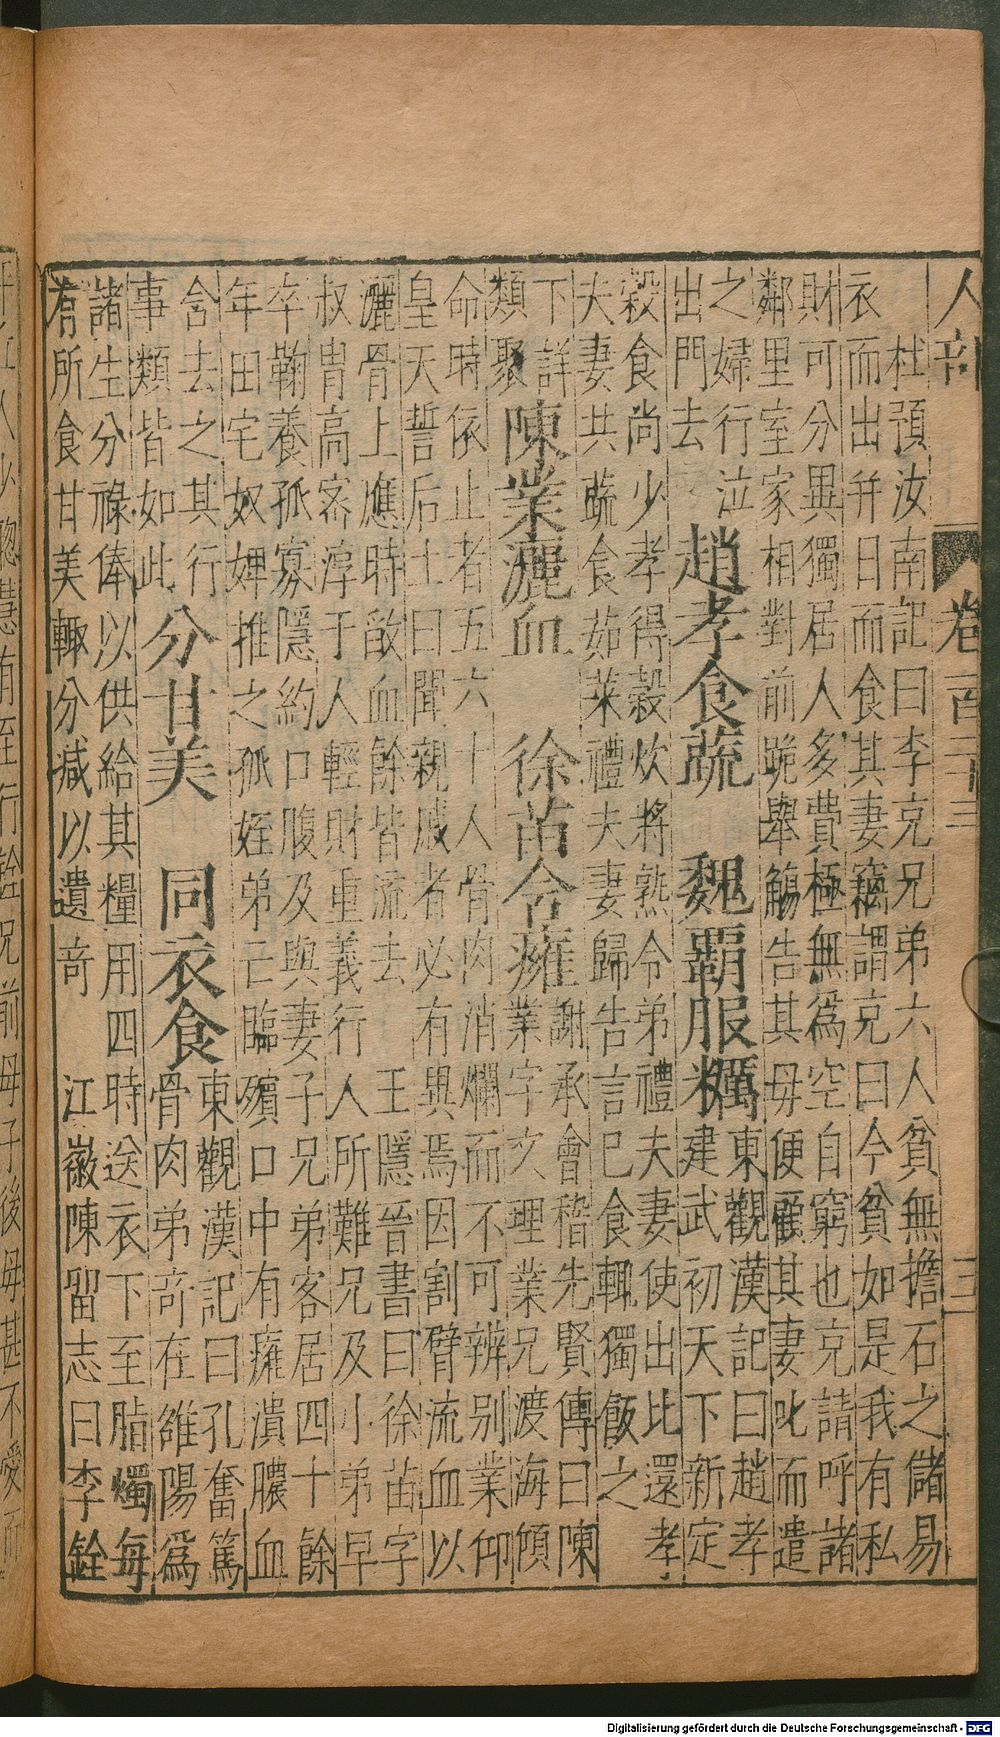 人部 卷一百二十三 三
杜預汝南記曰李充兄弟六人貧無擔石之儲易
衣而出并日而食其妻竊謂充曰今貧如是我有私
財可分異獨居人多費極無爲空自窮也充請呼諸
鄰里室家相對前跪舉觴告其母便顧其妻叱而遣
之婦行泣
出門去
趙孝食蔬 魏霸服糲
東觀漢記曰趙孝
建武初天下新定
穀食尚少孝得穀炊將熟令弟禮夫妻使出比還孝
夫妻共蔬食茹菜禮夫妻歸告言已食輒獨飯之
下詳
類聚
陳業灑血 徐苗含癰
謝承會稽先賢傳曰陳
業字文理業兄渡海傾
命時依止者五六十人骨肉消爛而不可辨别業仰
皇天誓后土曰聞親戚者必有異焉因割臂流血以
灑骨上應時歃血餘皆流去 王隱晉書曰徐苗字
叔胄高密淳于人輕財重義行人所難兄及小弟早
卒鞠養孤寡隱約口腹及與妻子兄弟客居四十餘
年田宅奴婢推之孤姪弟亡臨殯口中有癰潰膿血
含去之其行
事類皆如此
分甘美 同衣食
東觀漢記曰孔奮篤
骨肉弟奇在雒陽爲
諸生分祿俸以供給其糧用四時送衣下至脂燭每
有所食甘美輒分減以遺奇 江徽陳留志曰李銓
人少聰慧有至行銓兄前母子後母甚不愛而
Digitalisierung gefördert durch die Deutsche Forschungsgemeinschaft - DFG